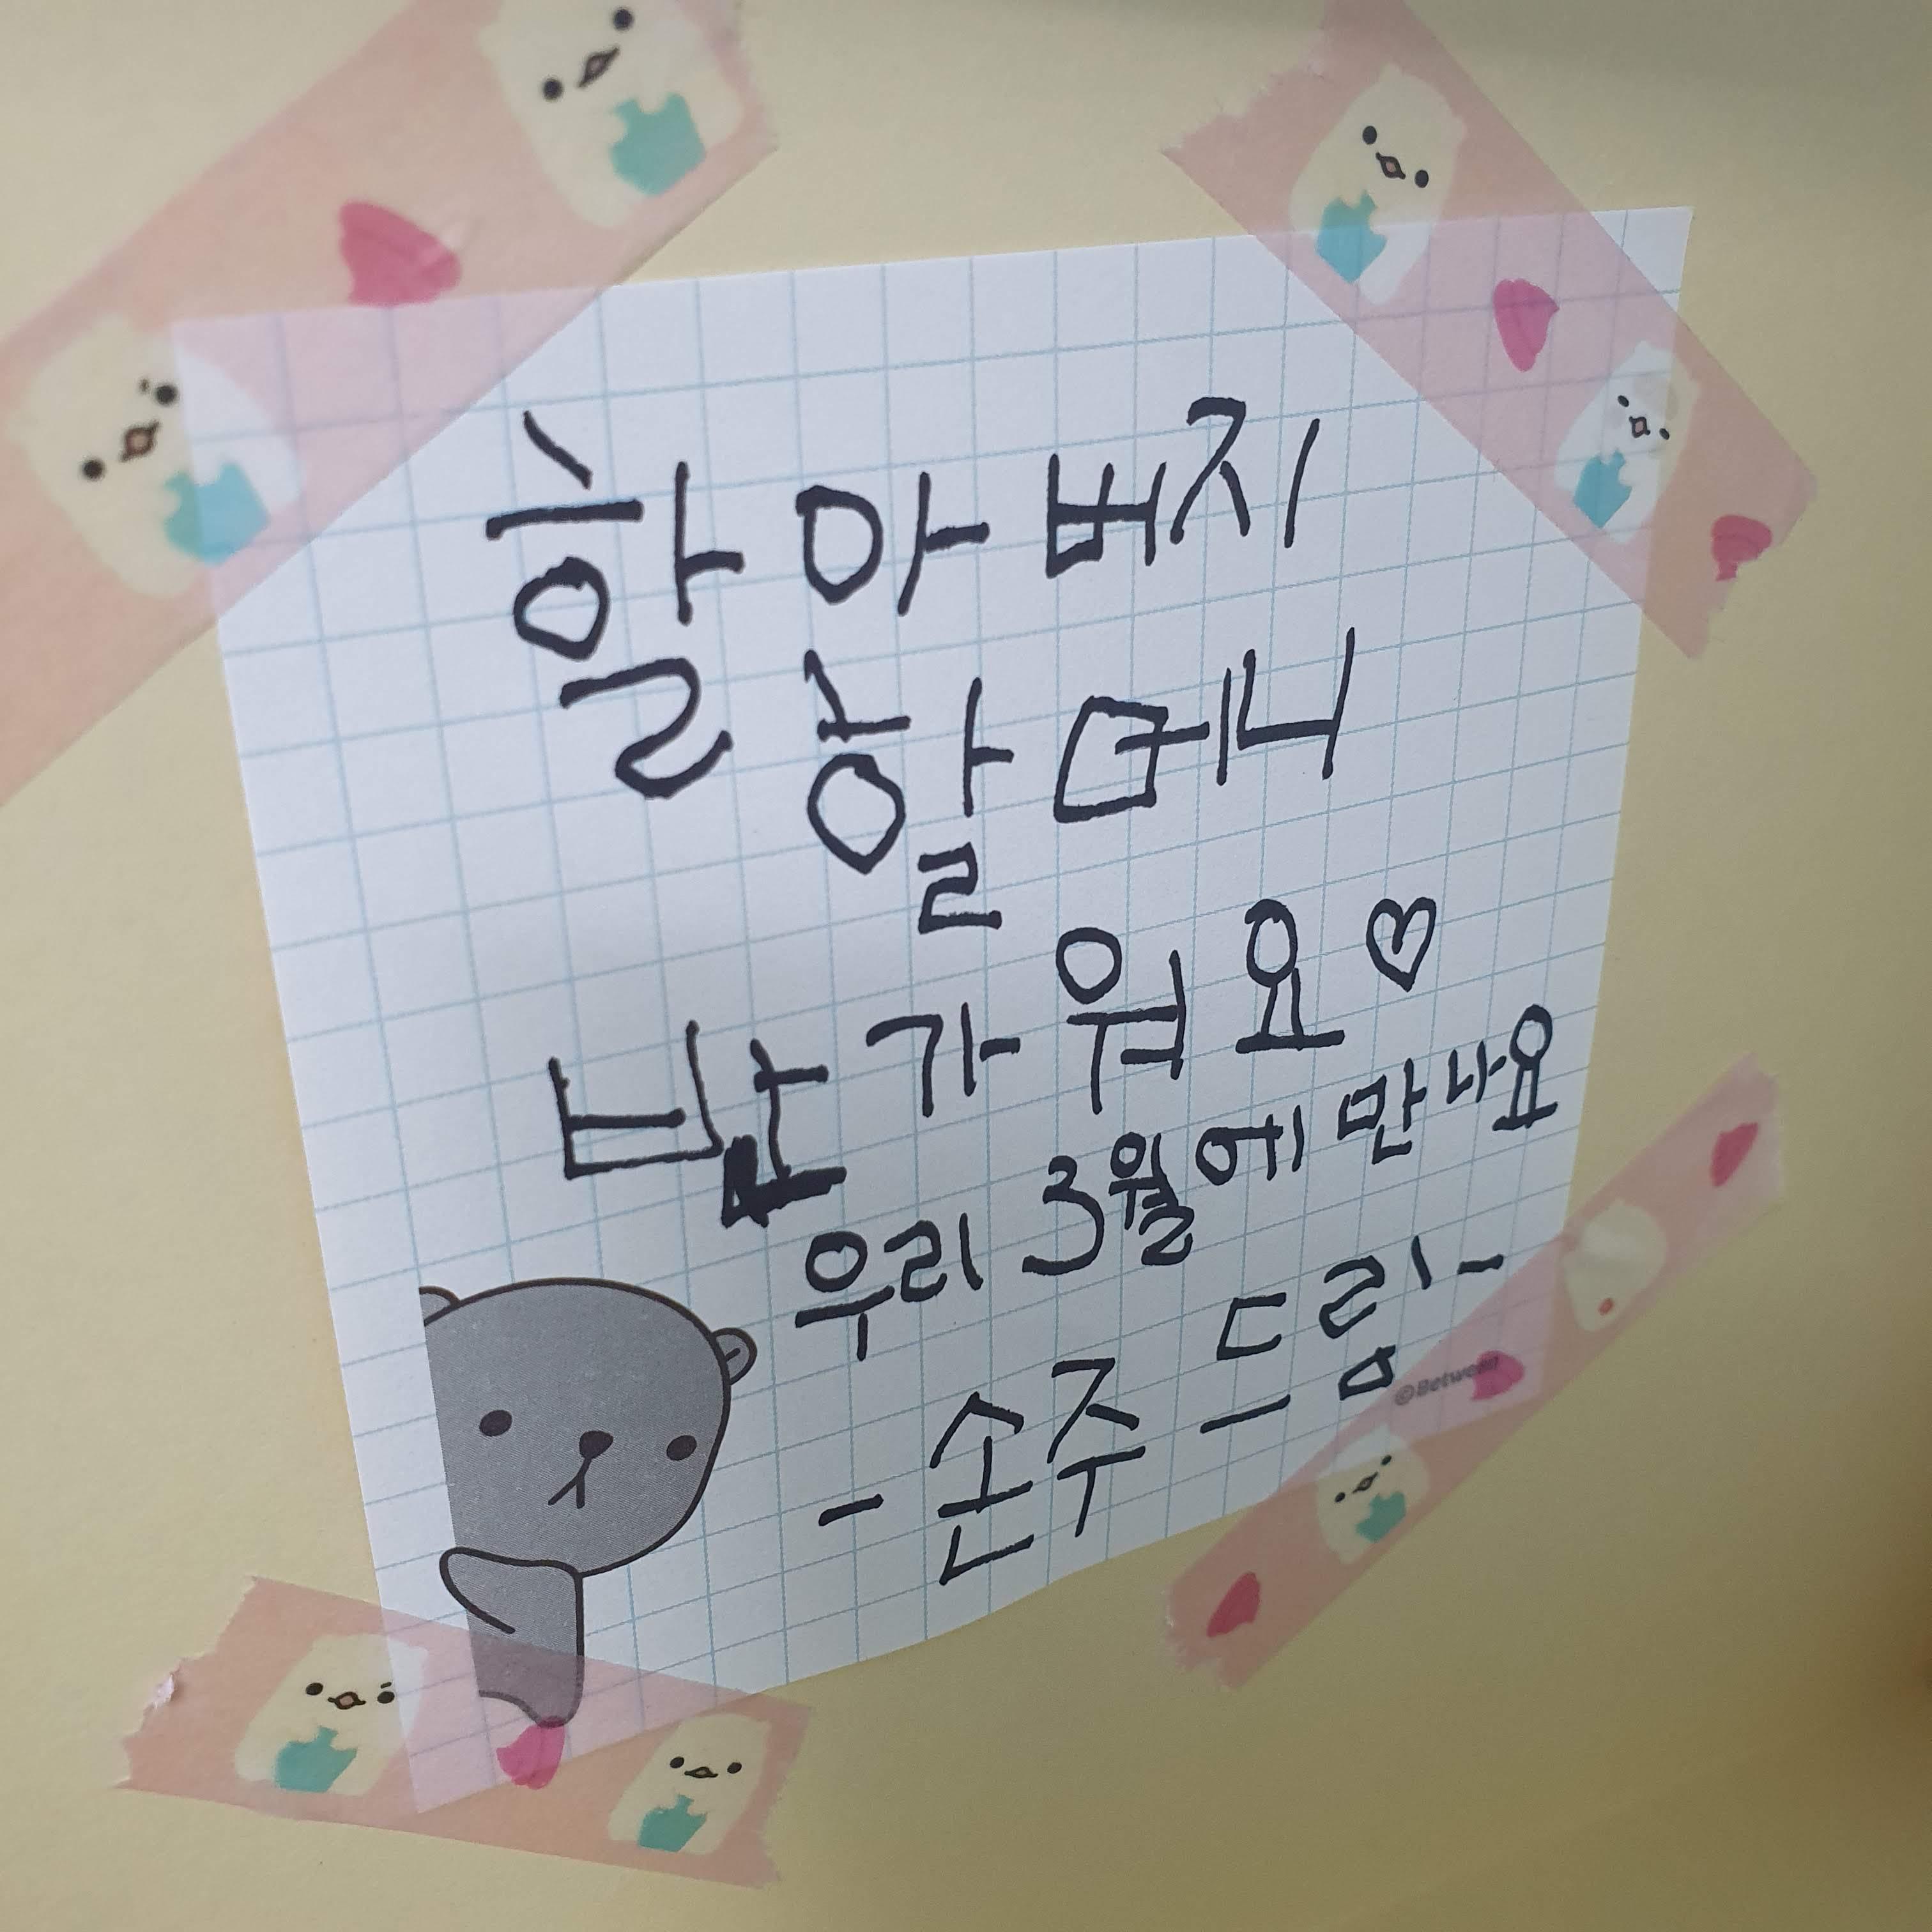 할아버지
할머니
반가워요♡
우리 3월에 만나요
- 손주 드림 -
©Between